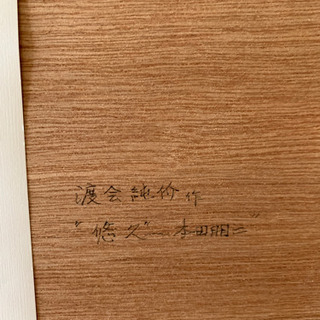 渡会純价作
"悠久" 本田明二"